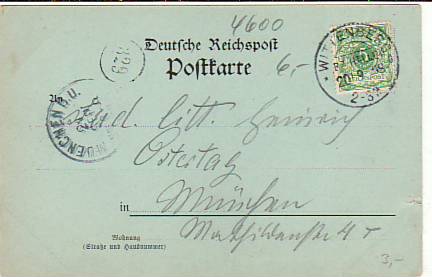 4600
Deutsche Reichspost
Postkarte
329
6,-
WITTENBERG
2-3N
An
cand. litt. Heinrich
Ostertag
in München
Mathildenstr 4
Wohnung
(Straße und Hausnummer)
3,-